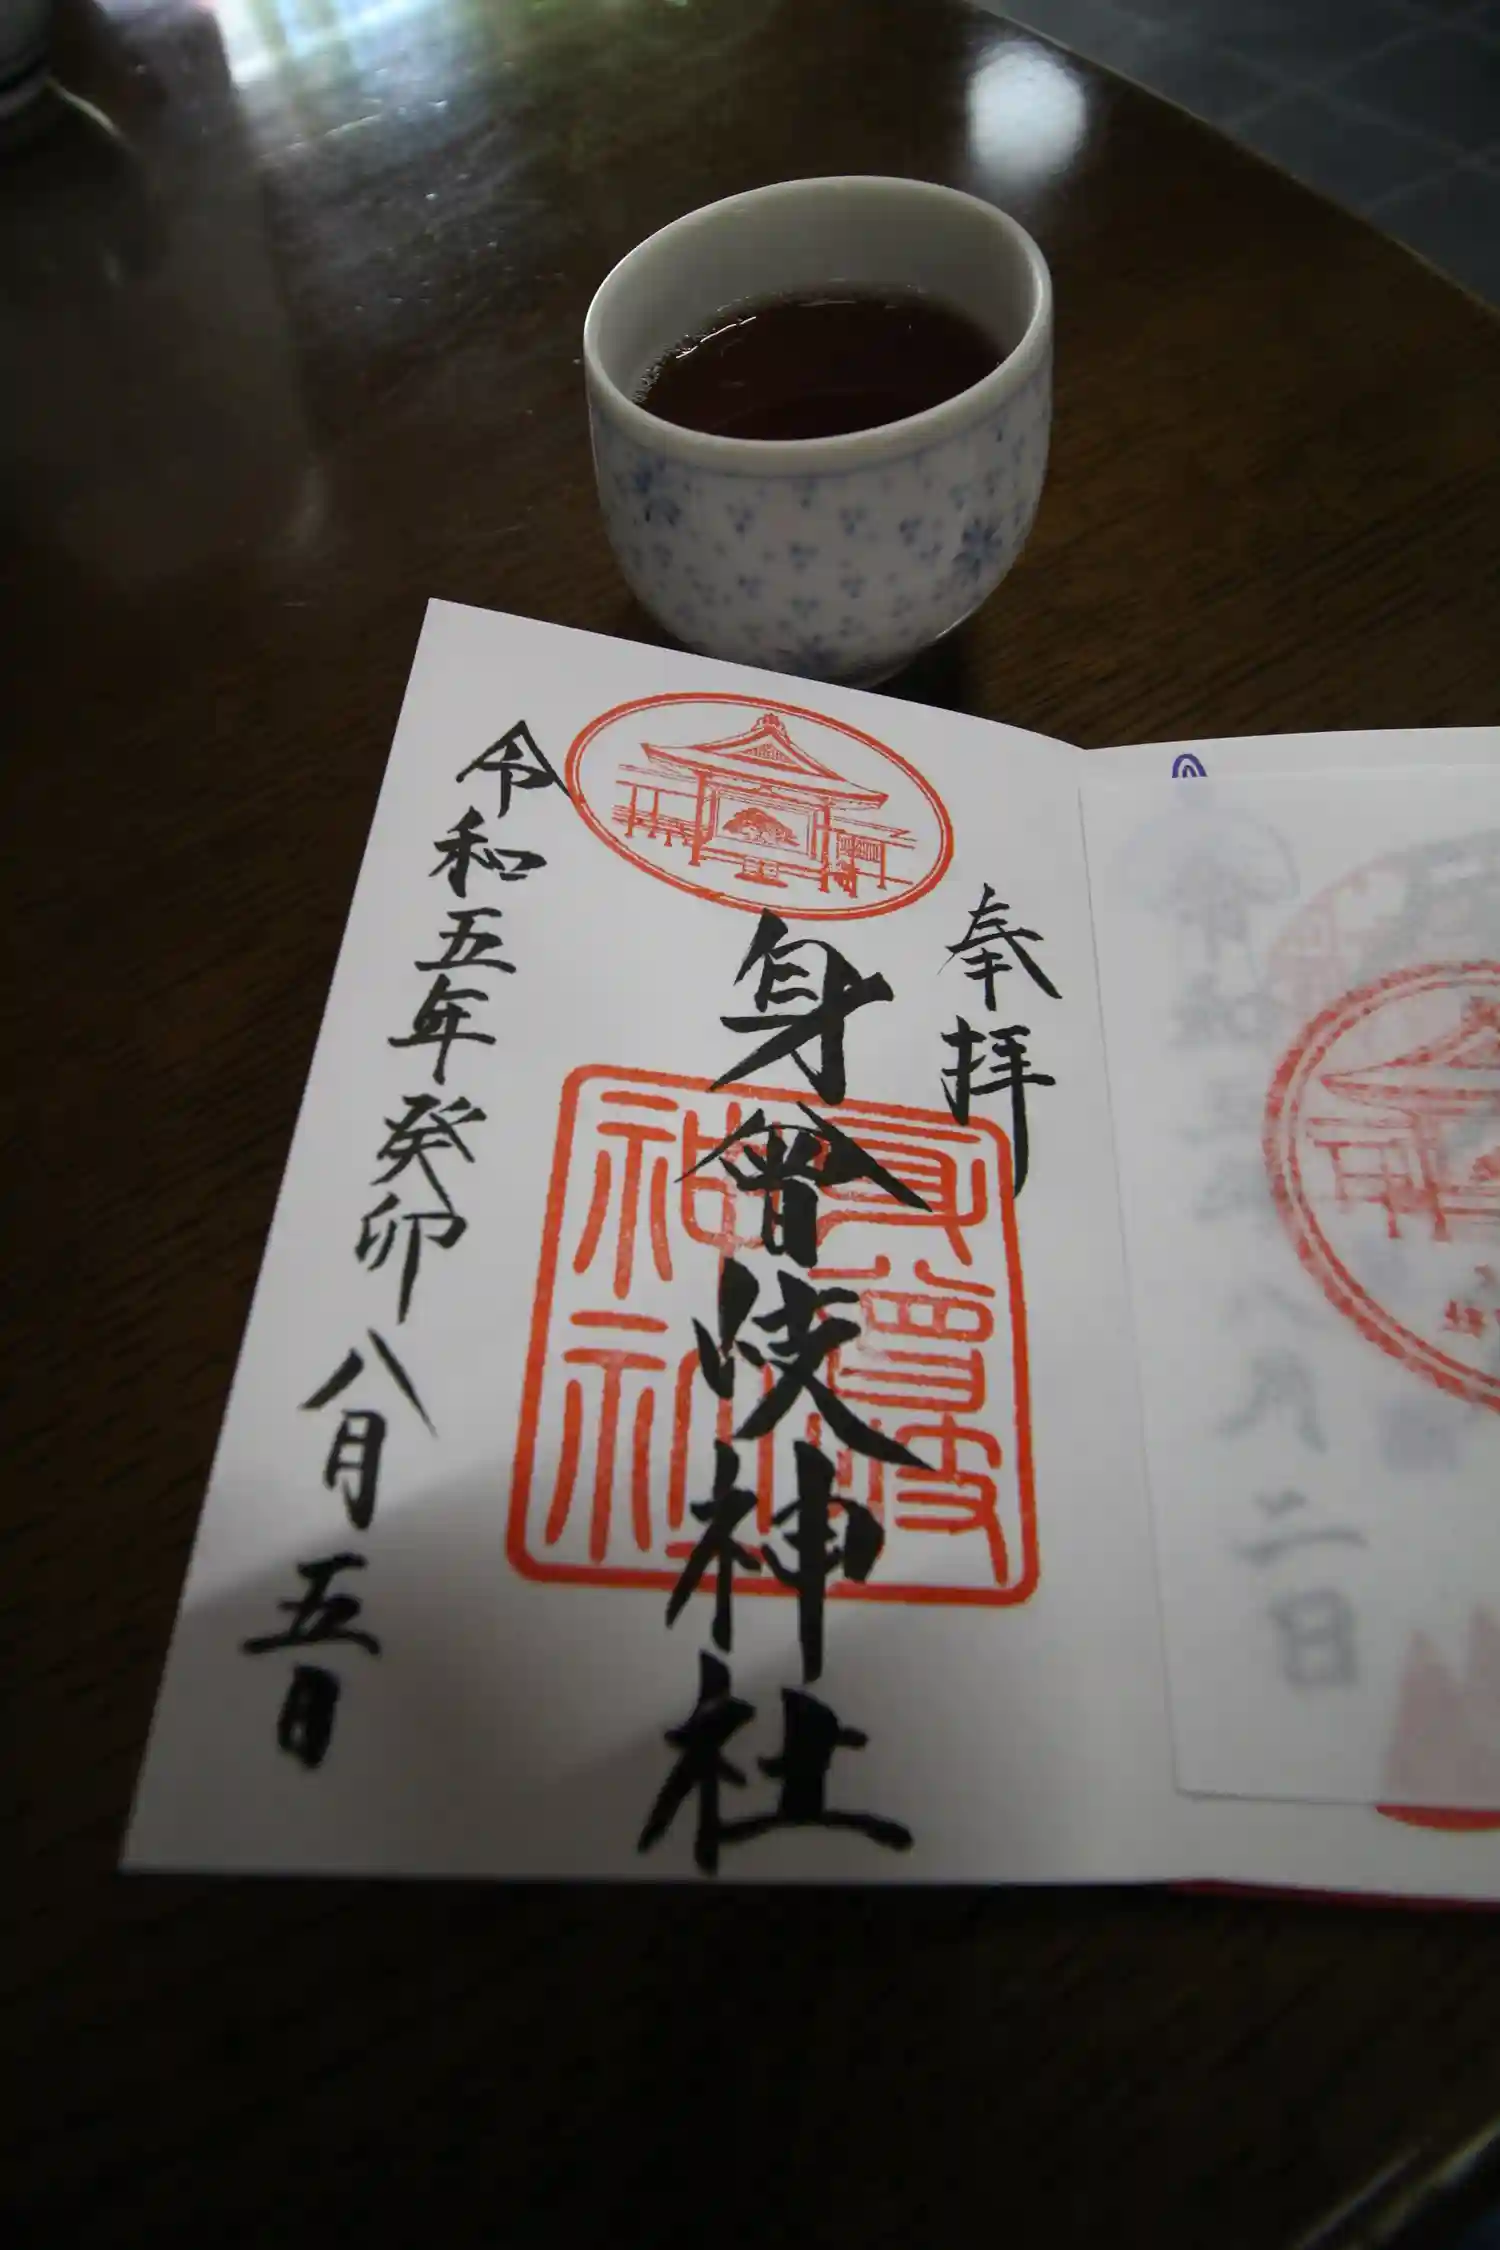 奉拝
身曾岐神社
身曾岐神社
令和五年癸卯八月五日
八月二日